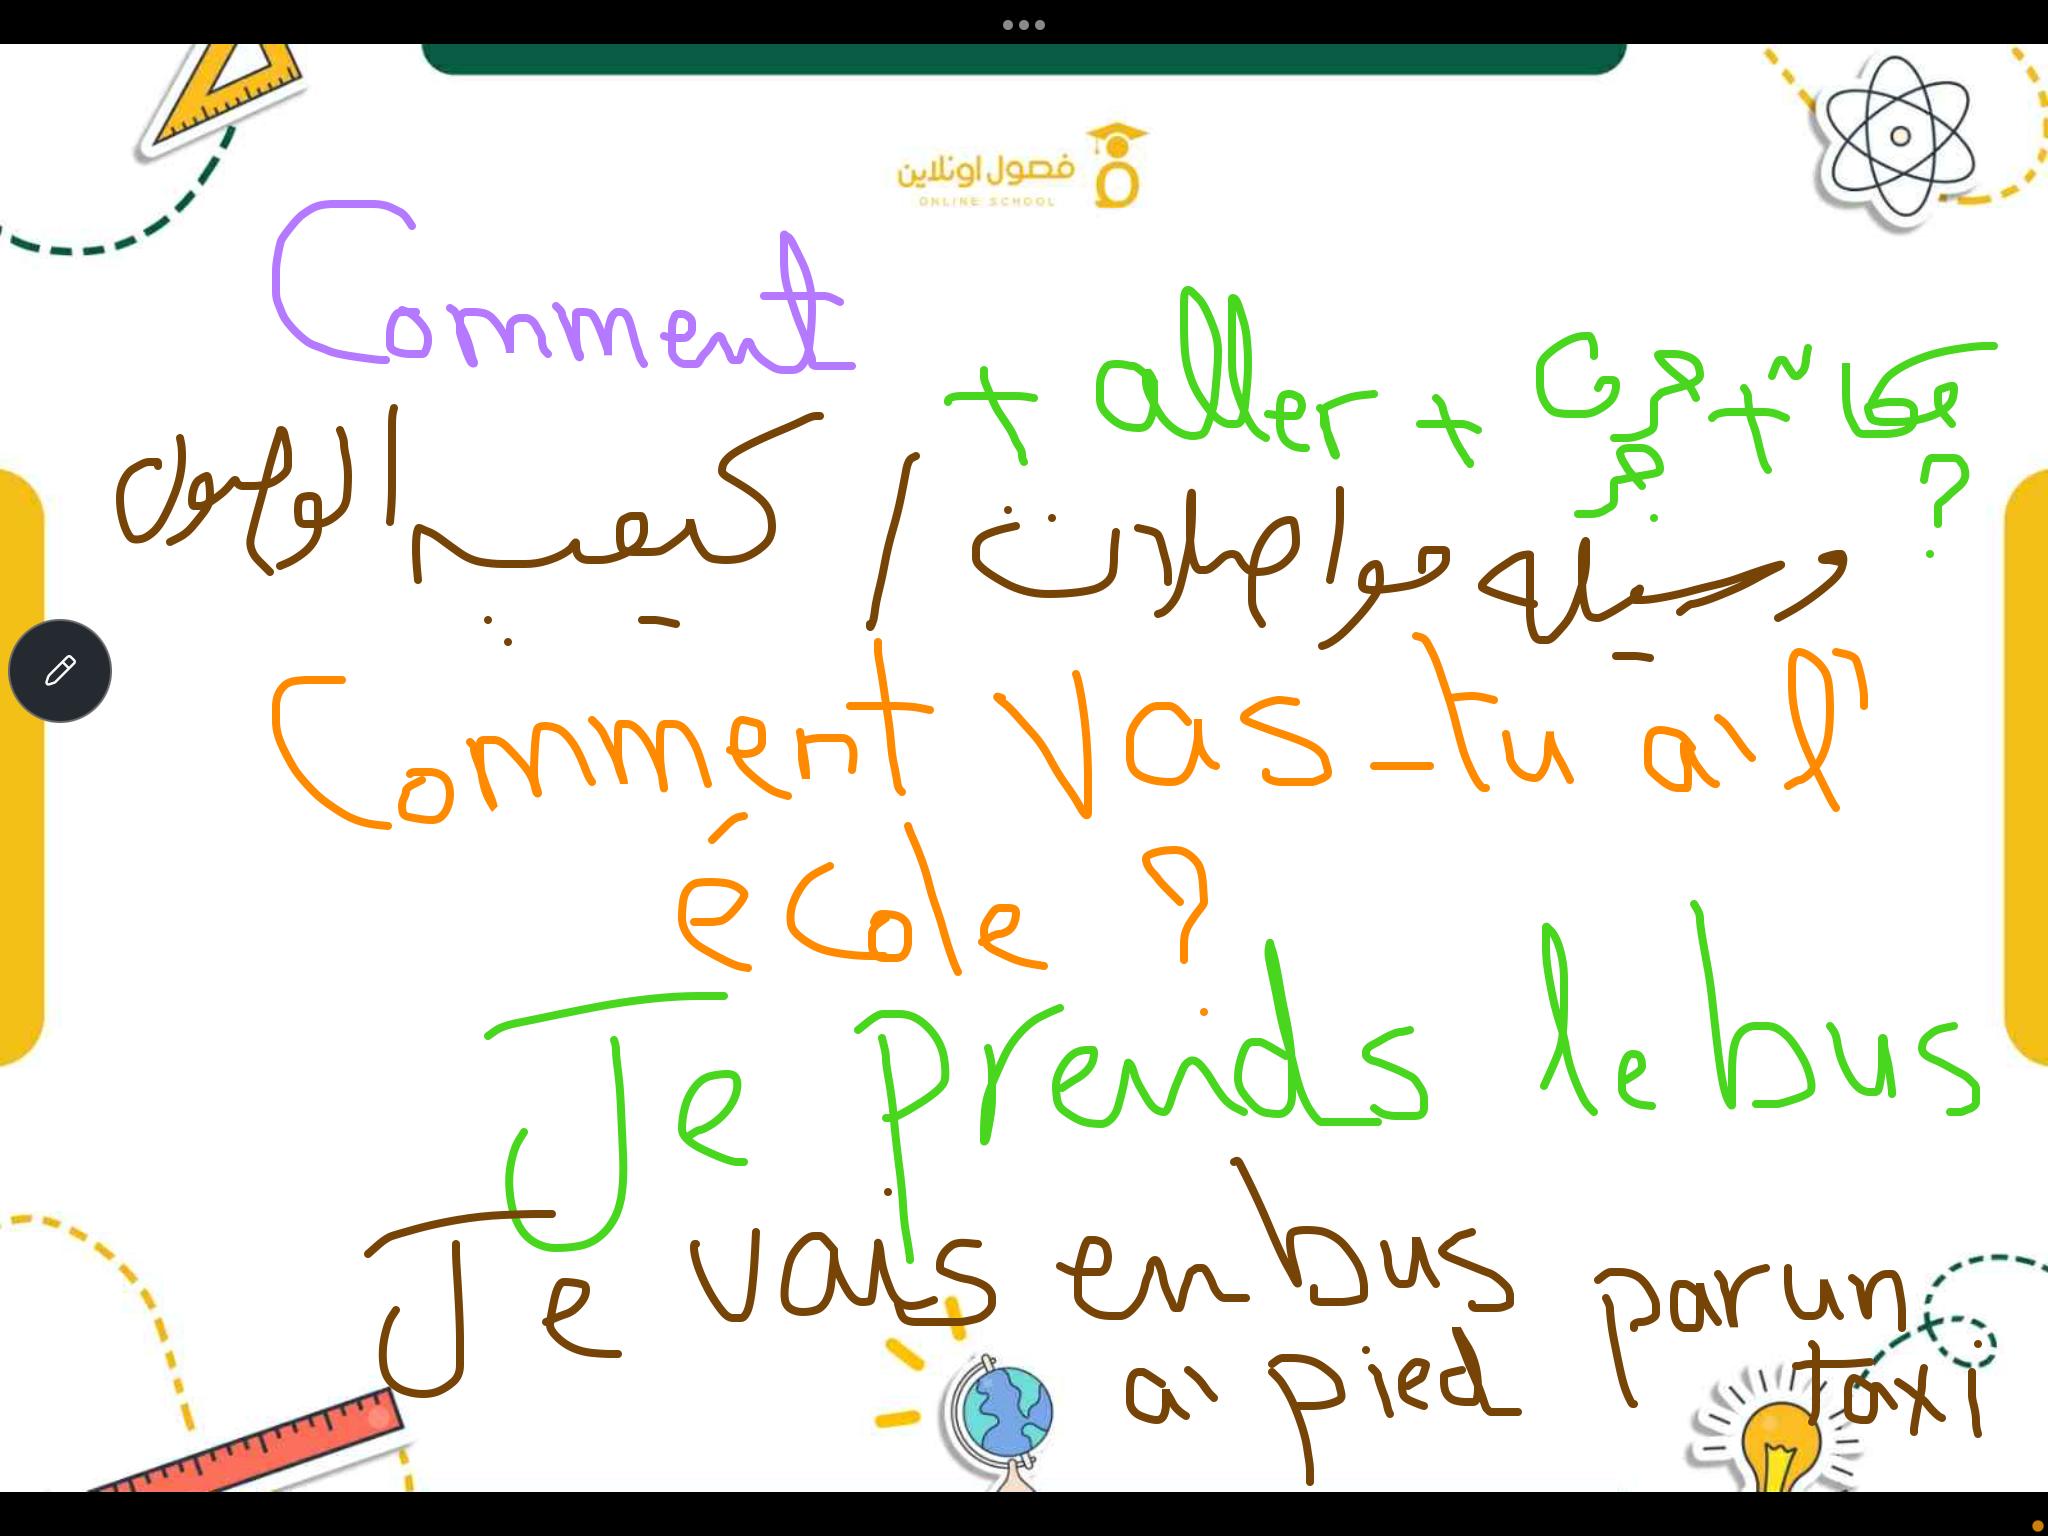 فصول اونلاين
ONLINE SCHOOL
Comment + aller + حرف جر + مكان ?
وسيله مواصلات / كيفيه الوصول
Comment vas-tu à l'
école ?
Je prends le bus
Je vais en bus par un taxi
à pied